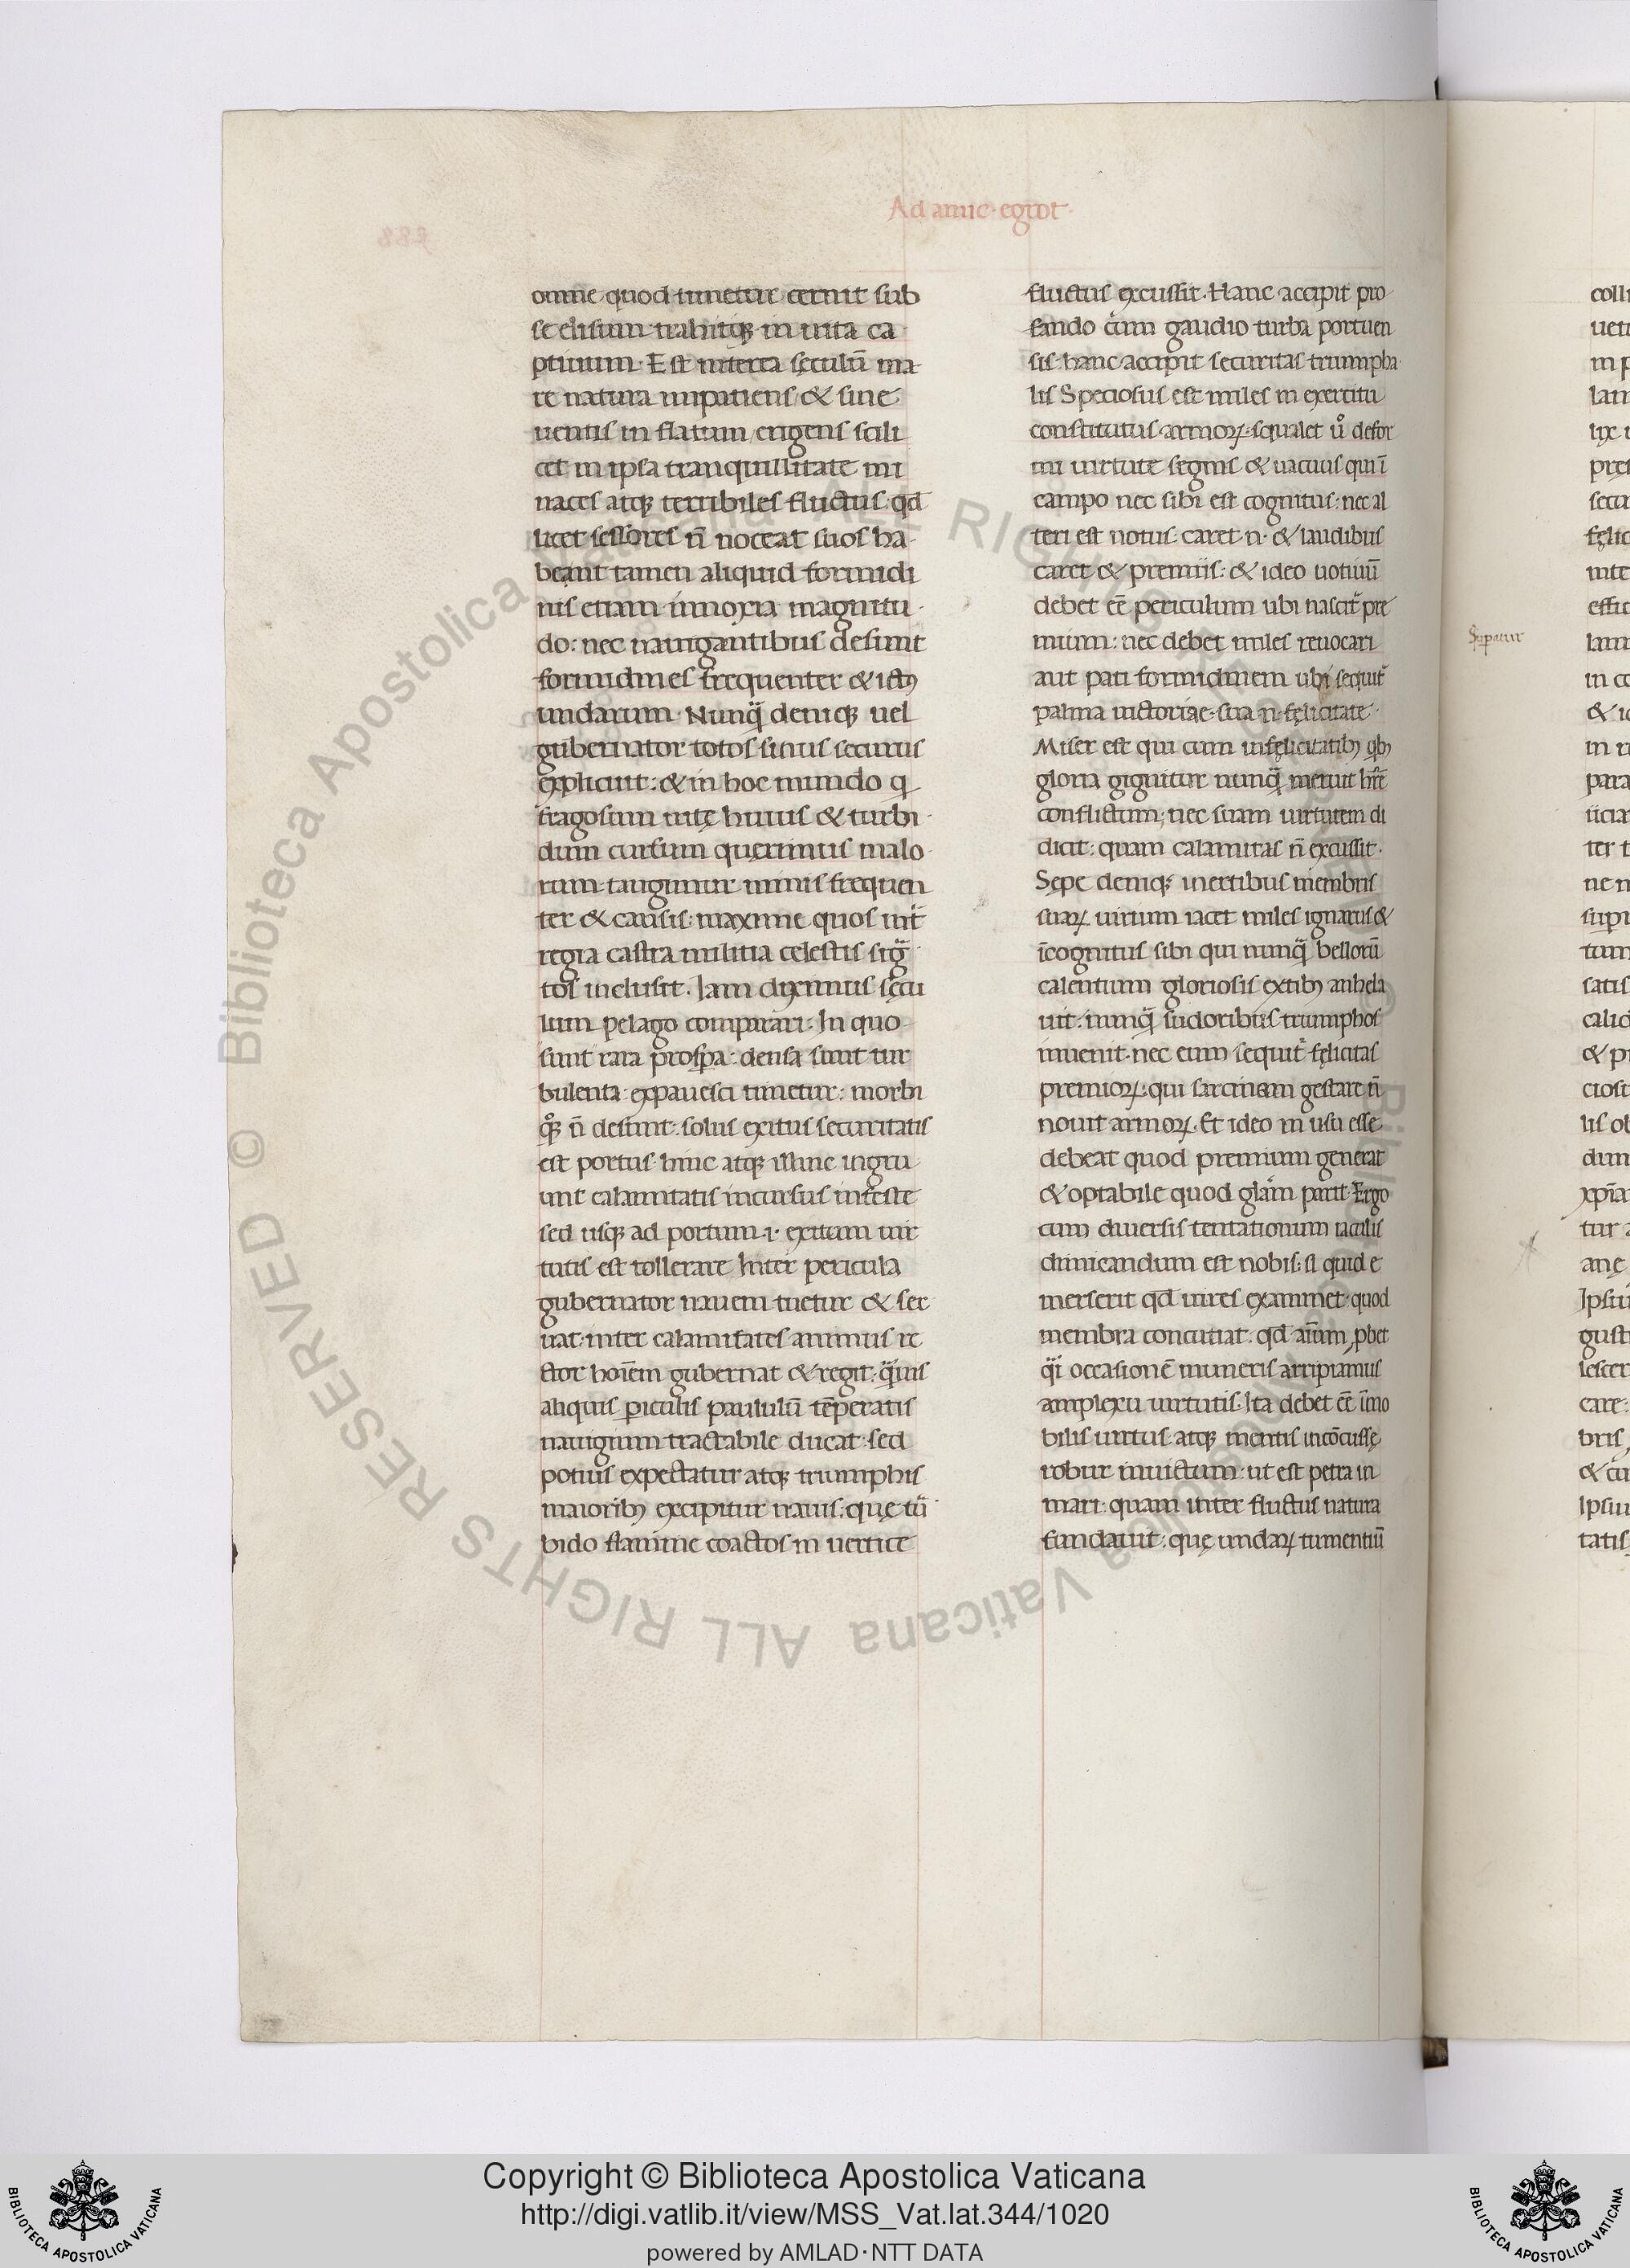 Ad amic· egrot·
omne quod timetur cernit sub
se elisum trahitq; in uita ca
ptiuum· Est interea sęculū ma
re natura inpatiens & sine
uentis in flatum erigens scili
cet in ipsa tranquillitate mi
naces atq; terribiles fluctus· qđ
licet sessores n̄ noceat suos ha
beant tamen aliquid formidi
nis etiam innoxia magnitu
do: nec nauigantibus desunt
formidines frequenter & ictꝰ
undarum· Nunq̄ deniq; uel
gubernator totos sinus securus
explicuit: & in hoc mundo q
fragosum uitę huius & turbi
dum cursum querimus malo
rum tangimur nimis frequen
ter & causis· maxime quos int̄
regia castra militia celestis sig̃
tos inclusit· Iam diximus sęcu
lum pelago comparari· In quo
sunt rara prosꝑa: densa sunt tur
bulenta: expauesci timetur: morbi
qͦq; n̄ desunt: solus exitus securitatis
est portus· hinc atq; illinc ingru
unt calamitatis incursus infeste
sed usq; ad portum ·i· exitum uir
tutis est tollerare Inter pericula
gubernator nauem tuetur & ser
uat· inter calamitates animus re
ctor hoīem gubernat & regit: q̄uis
aliquis ꝑiculis paululū tēperatis
nauigium tractabile ducat· sed
potius expectatur atq; triumphis
maioribꝰ excipitur nauis: quę tur
bido flamine coactos in uertice
fluctus excussit· Hanc accipit pro
fando cum gaudio turba portuen
sis· hanc accipit securitas triumpha
lis Speciosus est miles in exercitu
constitutus armoꝝ: squalet uͦ defor
mi uirtute segnis & uacuus qui ī
campo nec sibi est cognitus: nec al
teri est notus: caret ·n· & laudibus
caret & premiis: & ideo uotiuū
debet eē periculum ubi nascit̄ pre
mium: nec debet miles reuocari
aut pati formidinem ubi sequit̄
palma uictoriae· sera ·n· fęlicitate·
Miser est qui cum infęlicitatibꝰ qbꝰ
gloria gignitur nunq̄ meruit hr̄e
conflictum; nec suam uirtutem di
dicit: quam calamitas n̄ excussit·
Sępe deniq; inertibus membris
suaꝝ uirium iacet miles ignarus &
īcognitus sibi qui nunq̄ bellorū
calentum gloriosis extibꝰ anhela
uit: nunq̄ sudoribus triumphos
inuenit· nec eum sequit̄ fęlicitas
premioꝝ: qui sarcinam gestare n̄
nouit armoꝝ· Et ideo in usu esse
debeat quod premium generat
& optabile quod glām parit· Ergo
cum diuersis tentationum iaculis
dimicandum est nobis: si quid e
merserit qđ uires exanimet· quod
membra concutiat: qđ aīum ꝓbet
q̄i occasionē muneris arripiamus
amplexu uirtutis· Ita debet eē īmo
bilis uirtus atq; mentis incōcusse
robur inuictum: ut est petra in
mari: quam inter fluctus natura
fundauit: quę undaꝝ tumentiū
Copyright © Biblioteca Apostolica Vaticana
http://digi.vatlib.it/view/MSS_Vat.lat.344/1020
powered by AMLAD·NTT DATA
BIBLIOTECA APOSTOLICA VATICANA
BIBLIOTECA APOSTOLICA VATICANA
Biblioteca Apostolica Vaticana ALL RIGHTS RESERVED ©